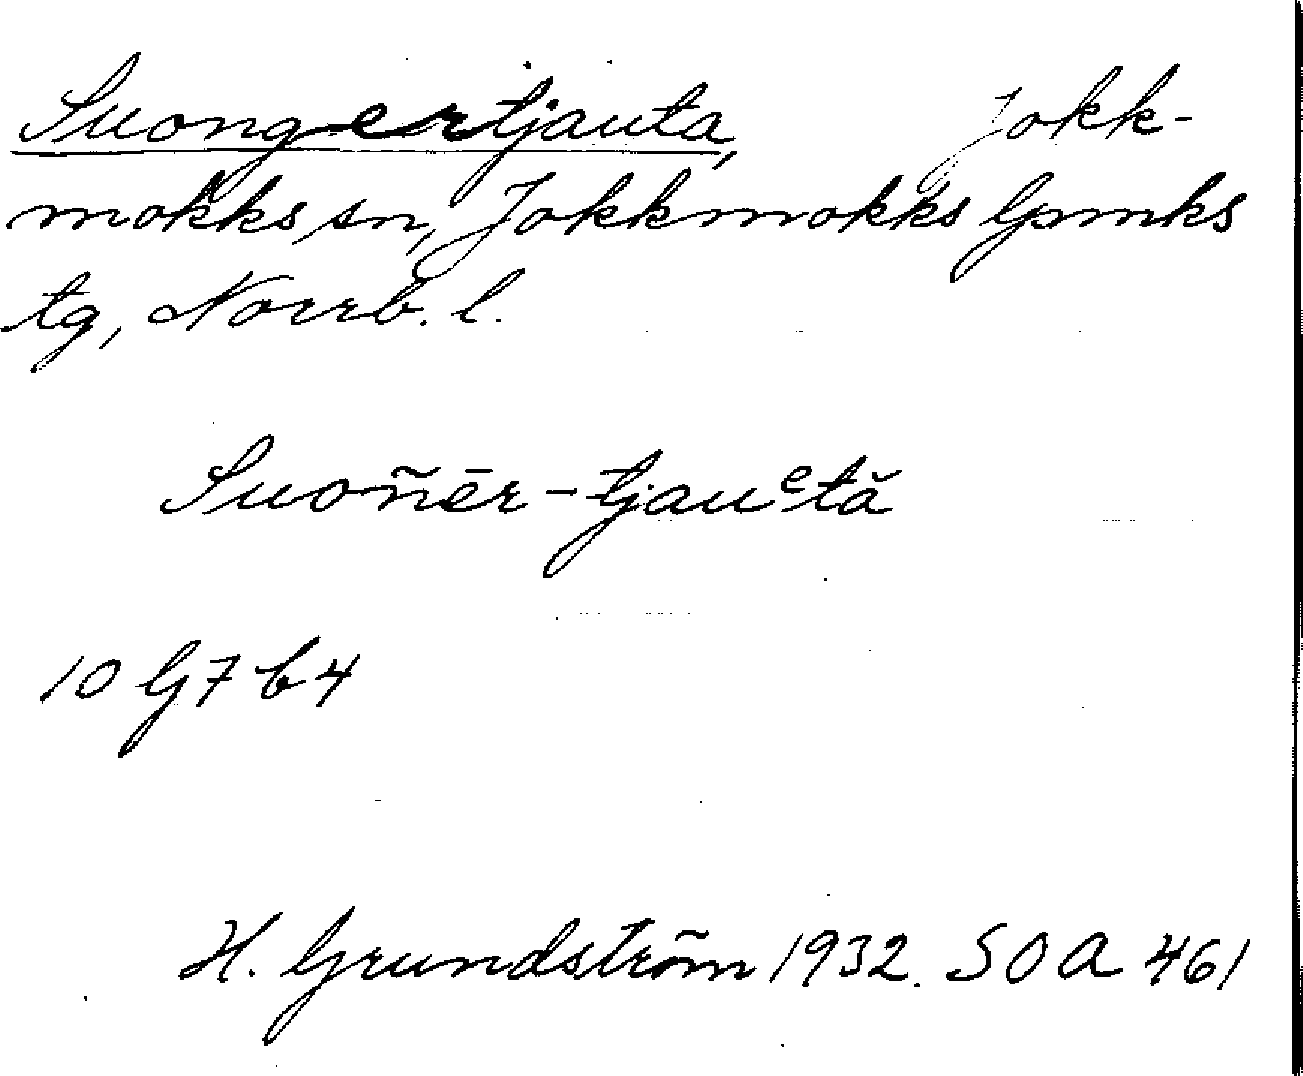 Suongertjauta, Jokk-
mokks sn, Jokkmokks lpmks
tg, Norrb. l.
Suoñēr-tjauᵉtă
10 G 7 b 4
H. Grundström 1932. SOA 461